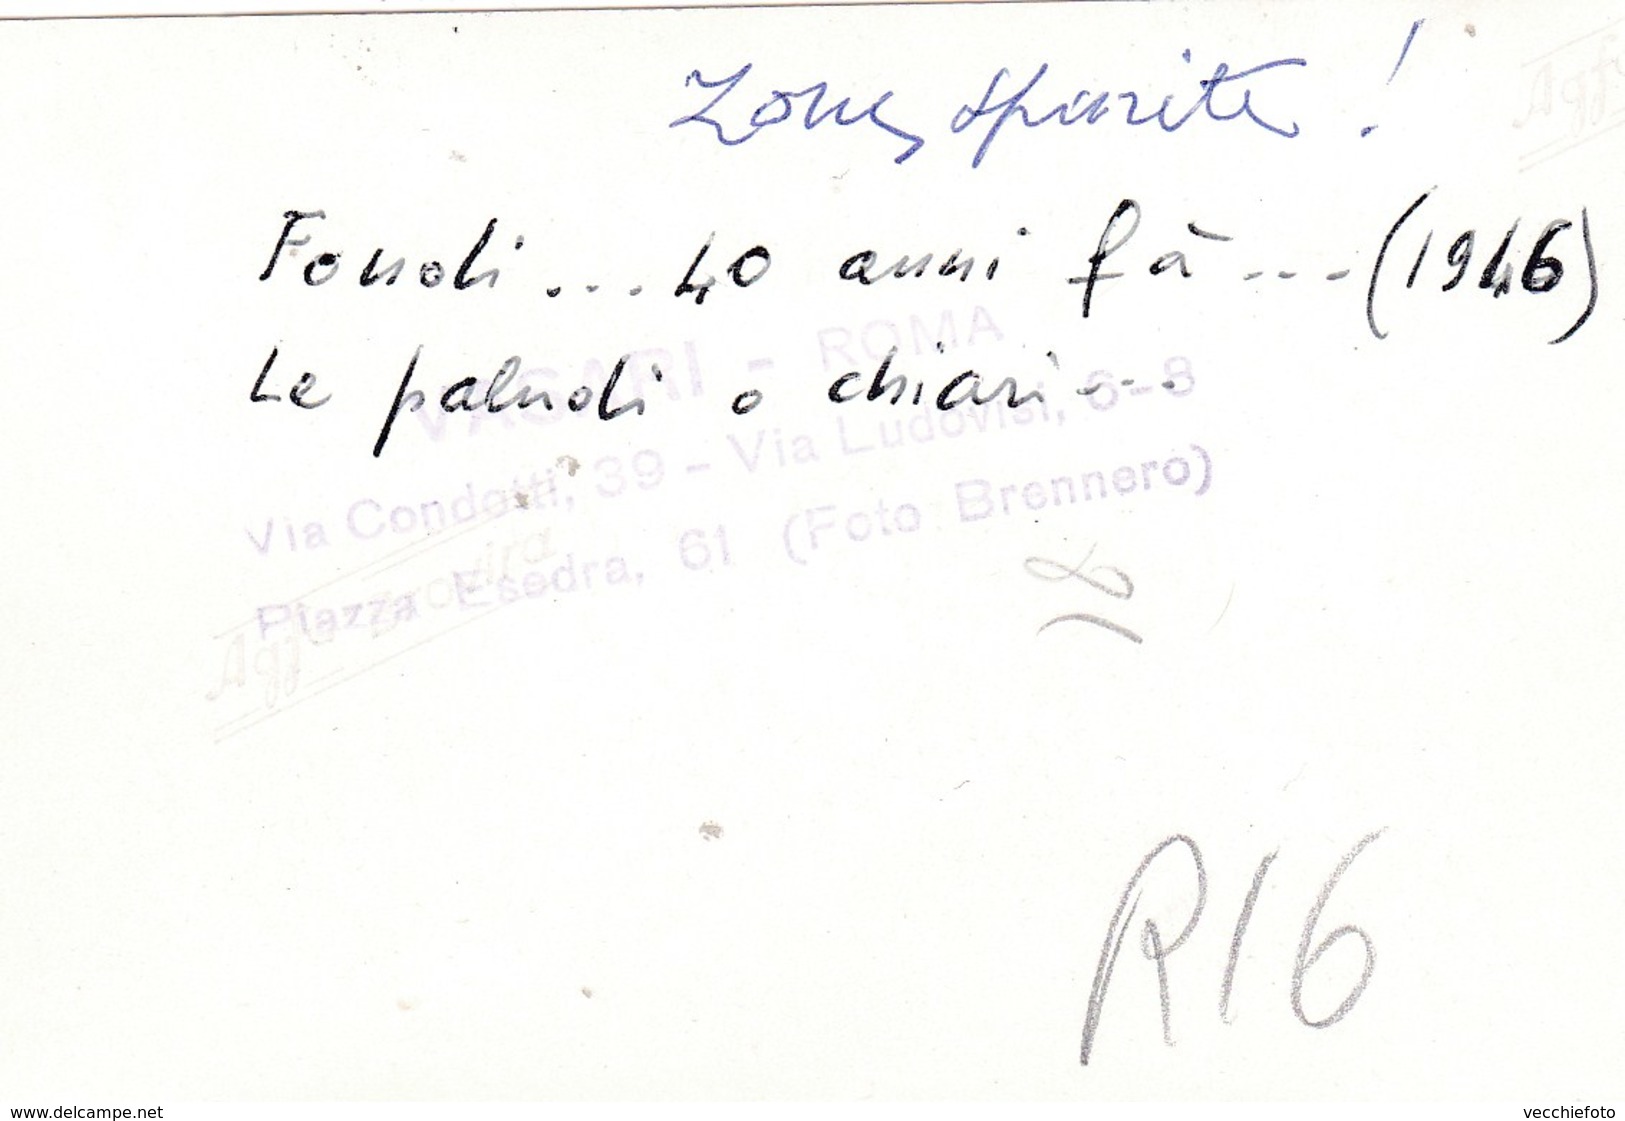 Zone sparite !
Fondi ... 40 anni fà ... (1946)
Le paludi o chiari ...
VASARI - ROMA
Via Condotti, 39 - Via Ludovisi, 6-8
Piazza Esedra, 61 (Foto Brennero)
Agfa Brovira
Agf
18
R16
www.delcampe.net
vecchiefoto